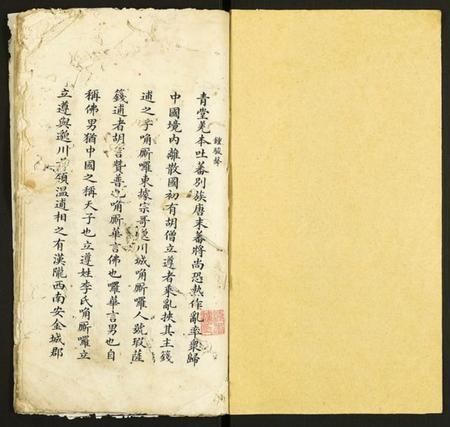 青堂羗本吐蕃别族唐末蕃將尚恐熱作亂率衆歸
中國境内離散國初有胡僧立遵者乘亂挾其主籛
逋之子唃厮囉東據宗哥邈川城唃厮囉人號瑕薩
籛逋者胡言贊普也唃厮華言佛也囉華言男也自
稱佛男猶中國之稱天子也立遵姓李氏唃厮囉立
立遵與邈川首領温逋相之有漢隴西南安金城郡